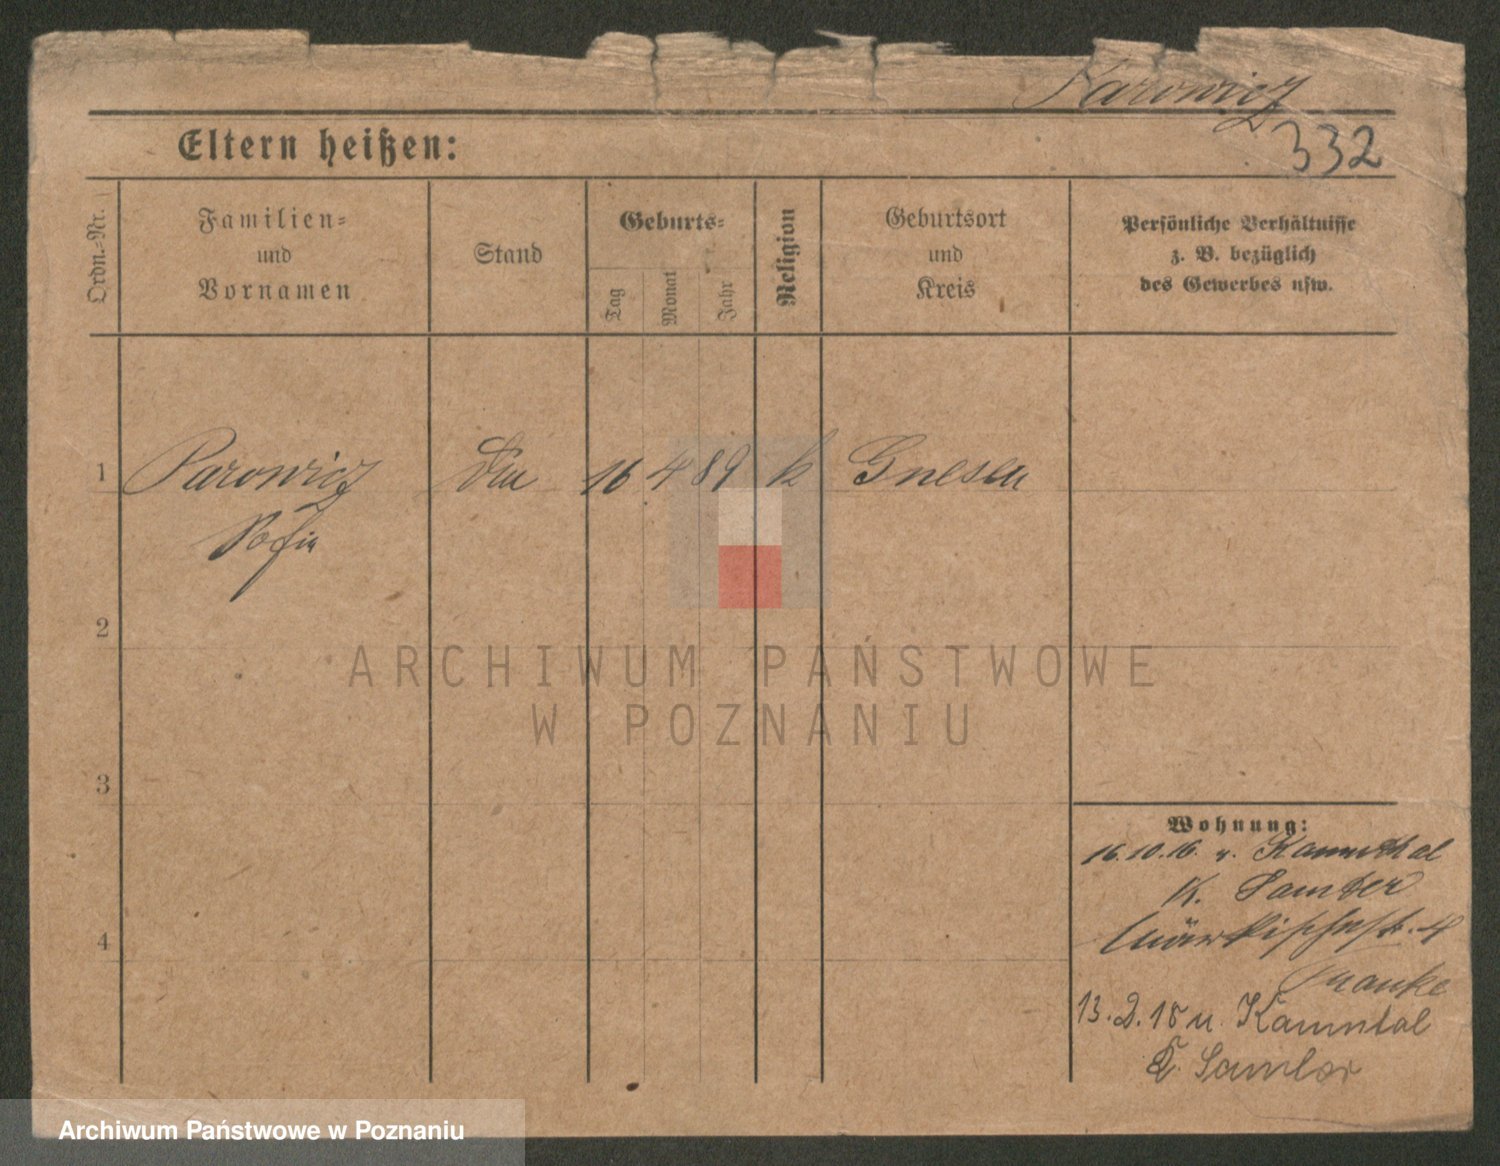 Parowicz
332
Eltern heißen:
Ordn.-Nr.
Familien-
und
Vornamen
Stand
Geburts-
Tag
Monat
Jahr
Religion
Geburtsort
und
Kreis
Persönliche Verhältnisse
z. B. bezüglich
des Gewerbes usw.
1 Parowicz 16 4 89 k Gnesen
Sofia
2
3
4
Wohnung:
16.10.16. v. Kammthal
K. Samter
Märkischestr. 4
Manke
13. 2. 18 n. Kammtal
K. Samter
ARCHIWUM PAŃSTWOWE
W POZNANIU
Archiwum Państwowe w Poznaniu